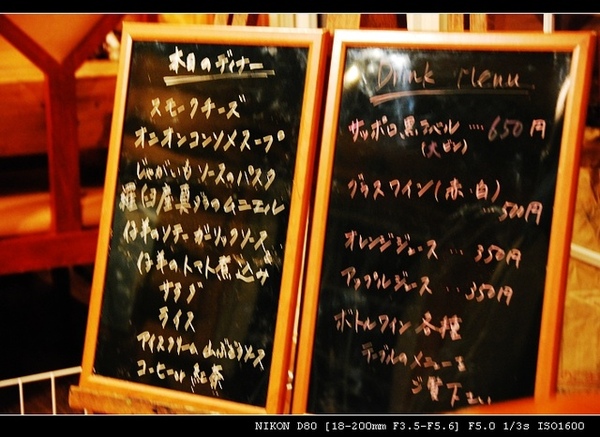 本日のディナー
スモークチーズ
オニオンコンソメスープ
じゃがいもソースのパスタ
羅臼産真ダラのムニエル
仔羊のソテーガーリックソース
仔羊のトマト煮込み
サラダ
ライス
アイスクリーム山ぶどうソース
コーヒーor紅茶
Drink Menu
サッポロ黒ラベル…650円
(大ビン)
グラスワイン(赤・白)
…500円
オレンジジュース…350円
アップルジュース…350円
ボトルワイン各種
テーブルのメニューを
ご覧下さい
NIKON D80 [18-200mm F3.5-F5.6] F5.0 1/3s ISO1600